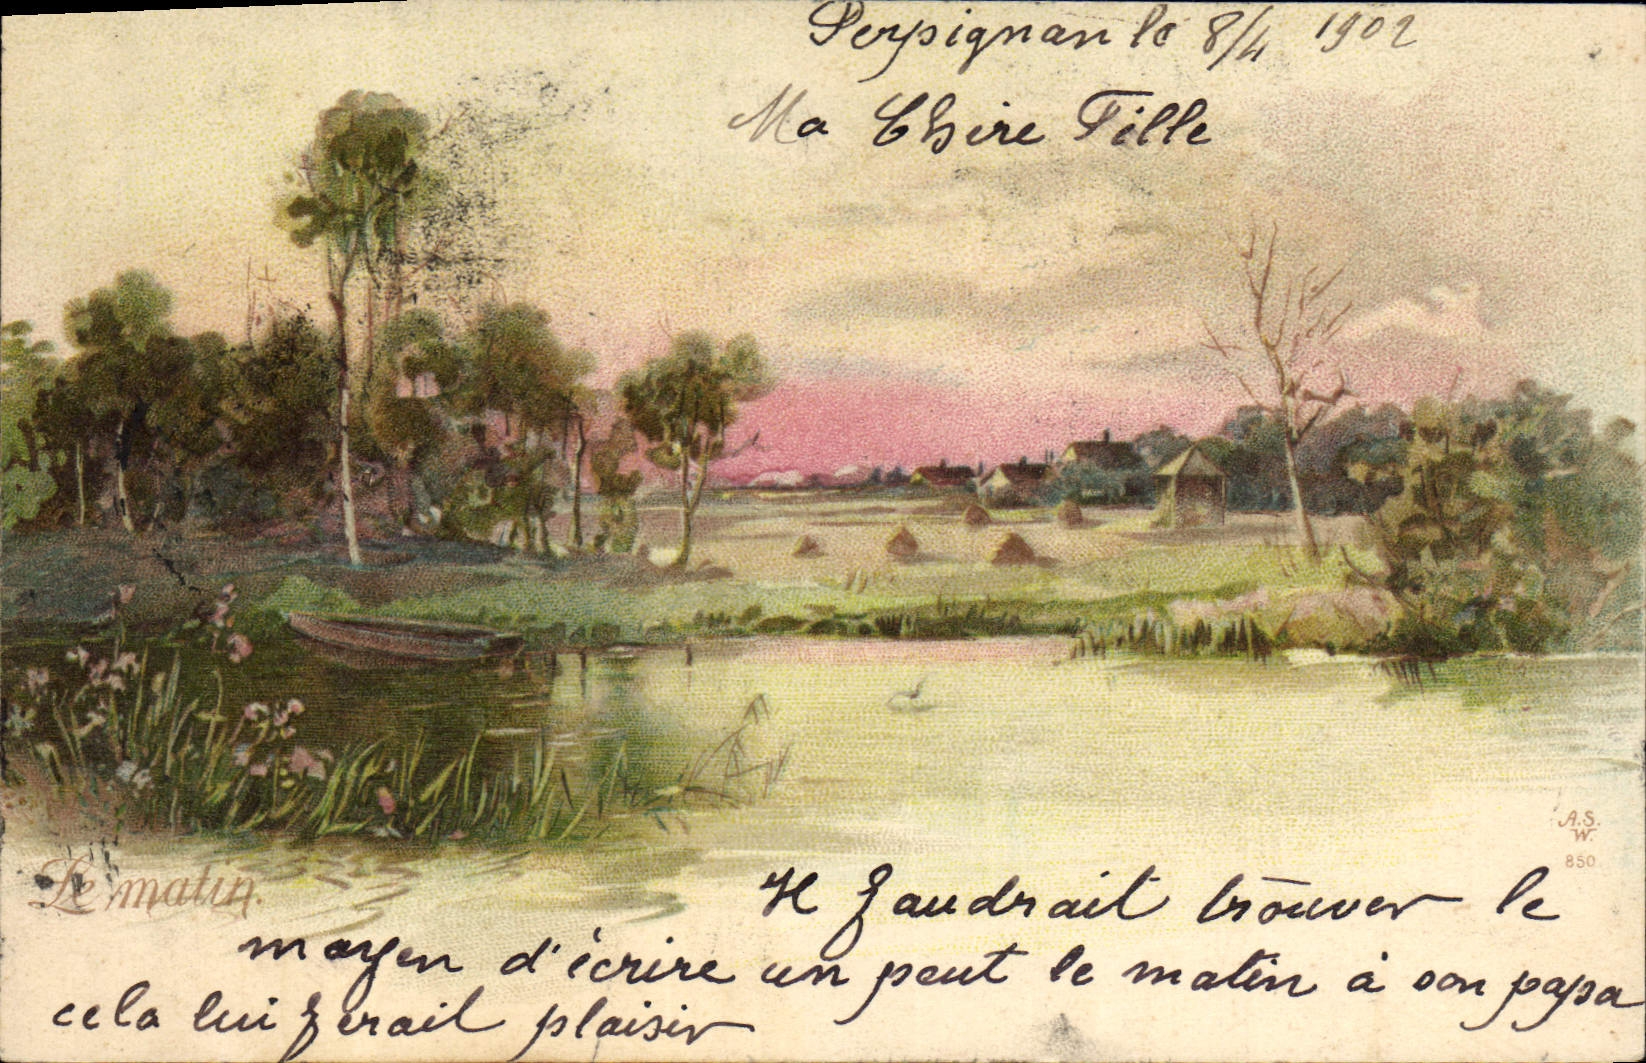 Perpignan le 8/4 1902
Ma Chère Fille
A.S.
W.
850
Le matin.
Il faudrait trouver le
moyen d'écrire un peut le matin à son papa
cela lui ferait plaisir